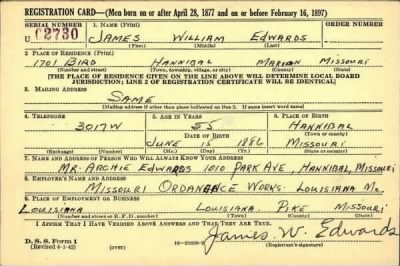 REGISTRATION CARD—(Men born on or after April 28, 1877 and on or before February 16, 1897)
SERIAL NUMBER 1. NAME (Print)
U 02730 JAMES WILLIAM EDWARDS
(First) (Middle) (Last)
2. PLACE OF RESIDENCE (Print)
1701 BIRD HANNIBAL MARION MISSOURI
(Number and street) (Town, township, village, or city) (County) (State)
[THE PLACE OF RESIDENCE GIVEN ON THE LINE ABOVE WILL DETERMINE LOCAL BOARD
JURISDICTION; LINE 2 OF REGISTRATION CERTIFICATE WILL BE IDENTICAL]
3. MAILING ADDRESS
SAME
[Mailing address if other than place indicated on line 2. If same insert word same]
4. TELEPHONE 5. AGE IN YEARS 6. PLACE OF BIRTH
3017W 55 HANNIBAL
DATE OF BIRTH (Town or county)
JUNE 15 1886 MISSOURI
(Exchange) (Number) (Mo.) (Day) (Yr.) (State or country)
7. NAME AND ADDRESS OF PERSON WHO WILL ALWAYS KNOW YOUR ADDRESS
MR. ARCHIE EDWARDS 1010 PARK AVE, HANNIBAL, MISSOURI
8. EMPLOYER'S NAME AND ADDRESS
MISSOURI ORDANANCE WORKS LOUISIANA MO.
9. PLACE OF EMPLOYMENT OR BUSINESS
LOUISIANA LOUISIANA PIKE MISSOURI
(Number and street or R. F. D. number) (Town) (County) (State)
I AFFIRM THAT I HAVE VERIFIED ABOVE ANSWERS AND THAT THEY ARE TRUE.
D. S. S. Form 1
(Revised 4-1-42) (over) James W. Edwards
(Registrant's signature)